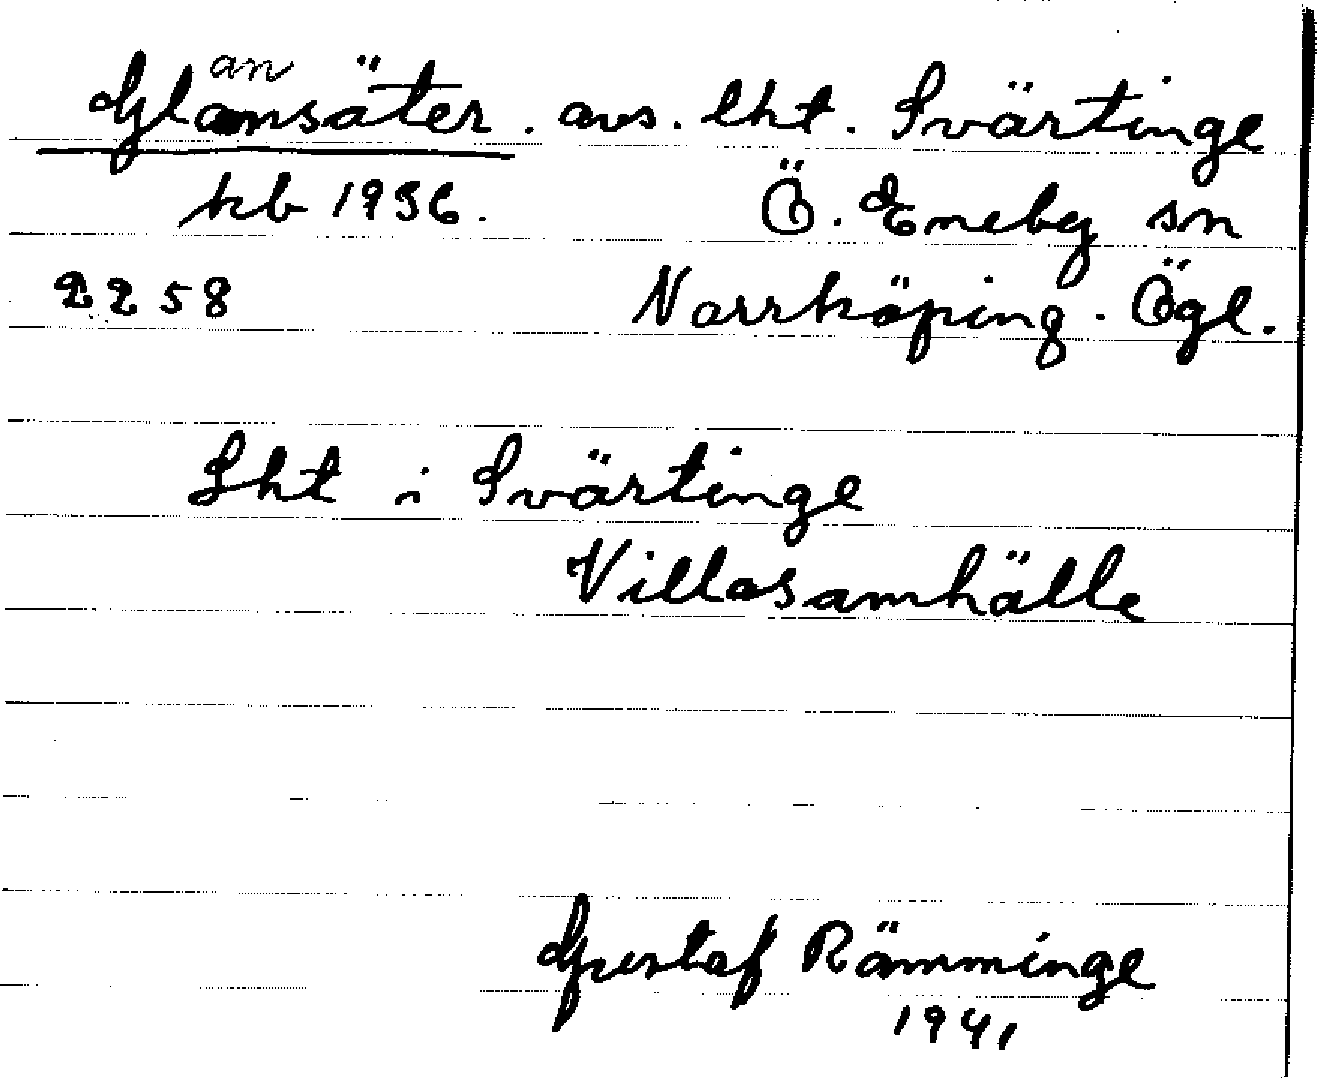 an
Glansäter. avs. lht. Svärtinge
kb 1936. Ö. Eneby sn
2258 Norrköping. Ögl.
Lht i Svärtinge
Villasamhälle
Gustaf Rämminge
1941